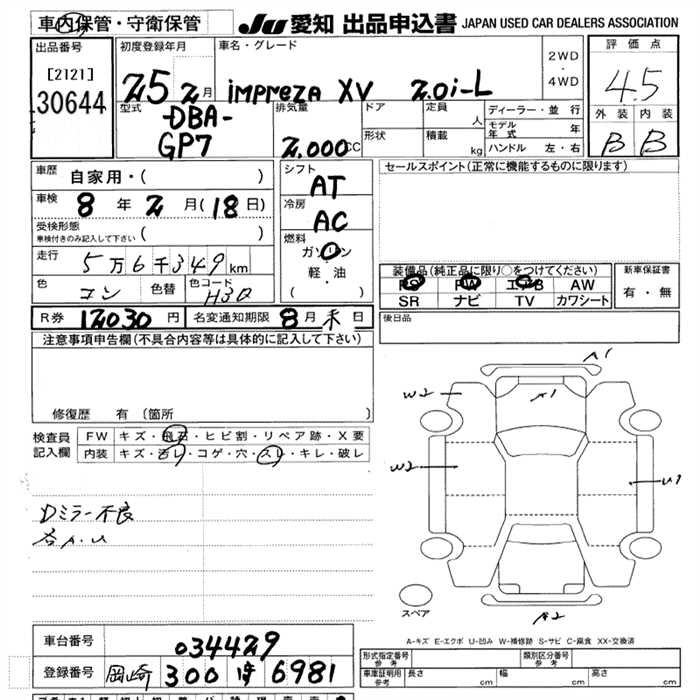 車内保管・守衛保管
JU 愛知 出品申込書 JAPAN USED CAR DEALERS ASSOCIATION
出品番号
[2121]
30644
初度登録年月
25 2月
車名・グレード
impreza XV 2.0i-L
2WD
・
4WD
評価点
4.5
外装 内装
B B
型式
-DBA-
GP7
排気量
2,000cc
ドア
形状
定員
人
積載
kg
ディーラー・並行
モデル年式 年
ハンドル 左・右
車歴
自家用・( )
車検
8年2月(18日)
受検形態
車検付きのみ記入して下さい ( )
走行
5万6千349km
色
コン
色替
色コード
H3Q
シフト
AT
冷房
AC
燃料
ガソリン
軽・油
( )
セールスポイント(正常に機能するものに限ります)
装備品(純正品に限り○をつけてください)
PS PW エアB AW
SR ナビ TV カワシート
新車保証書
有・無
R券 12030円
名変通知期限 8月末日
後日品
注意事項申告欄(不具合内容等は具体的に記入して下さい)
修復歴 有 〔箇所 〕
検査員記入欄
FW キズ・飛石・ヒビ割・リペア跡・X要
内装 キズ・汚レ・コゲ・穴・スレ・キレ・破レ
Dミラー不良
各A.U
A1
W2
A1
W2
U1
スペア
A2
A-キズ E-エクボ U-凹み W-補修跡 S-サビ C-腐食 XX-交換済
車台番号
034429
登録番号
岡崎 300 6981
形式指定番号
参考
類別区分番号
参考
車庫証明用
参考
長さ cm
幅 cm
高さ cm